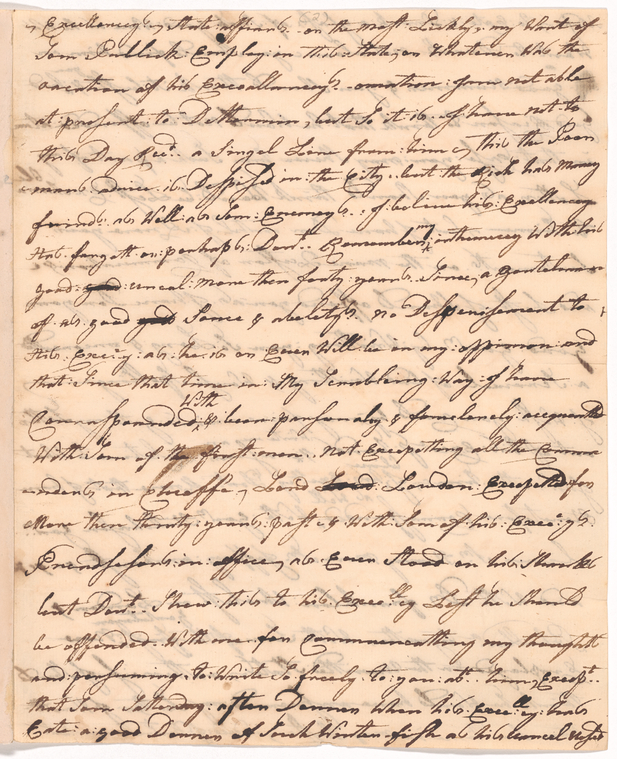 Excellencey State affiars on the most Lickly my Want of
Som Publick Employ in this State on Whatever Was the
occation of his Execallenceys I am not able
at present to Determin, but So it is I have not to
this Day Recd a Singel Line from time, this the Poor
mans advice is Despised in the City but the Rich has Many
frinds as Well as Som Enemeys I belive his Excellencey
has forgott or perhaps Dont Remember my Withe his
good good uncal more then forty years Since, a gentelman
of as good good Sence & abeletys no Despenisement to
his Execy as he is or Ever Will be in my oppinnon and
that Since that time in My Scrabbling Way I have
With
Corrasponded & been parsonaly & famelarly acquanted
With Som of the first men not Excepting all the Comman
in Lord Lord London Excepted for
More then thirty years past & With Som of his Execys
in office as Ever Stood on his
but Dont Shew this to his Execellcy Lest he Should
be offended With me for Commuencatting my thoughts
and persuming to Write So freely to you abt him, Except
that Som Satterday after Dennor When his Execellcy has
Eate a good Dennor of Such fish as his uncel